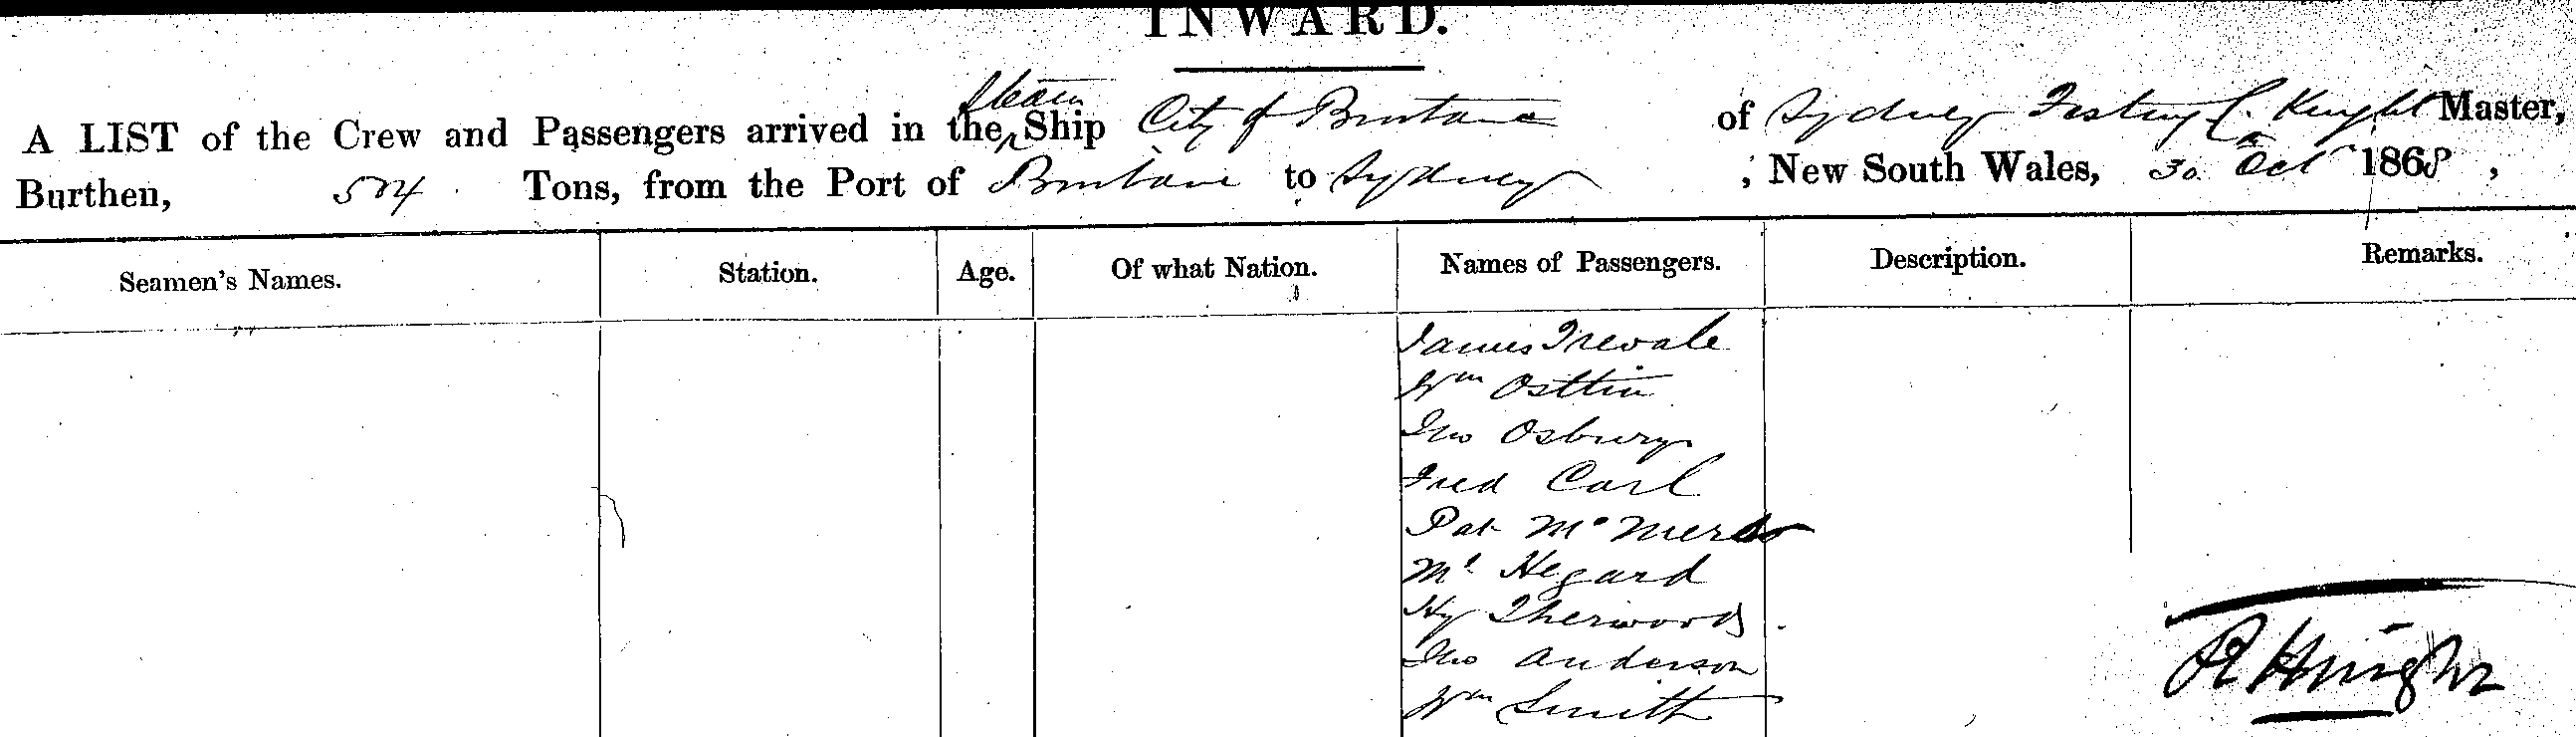 INWARD.
A LIST of the Crew and Passengers arrived in the Steam Ship City of Brisbane of Sydney Knight Master,
Burthen, 504 Tons, from the Port of Brisbane to Sydney, New South Wales, 30 Oct 1868,
Seamen's Names. Station. Age. Of what Nation. Names of Passengers. Description. Remarks.
James Trevale
Wm Osttin
Jno Osbury
Fred Carl
Pat Mc
Mr Hegard
Hy Sherwood
Jno Anderson
Wm Smith
Knight